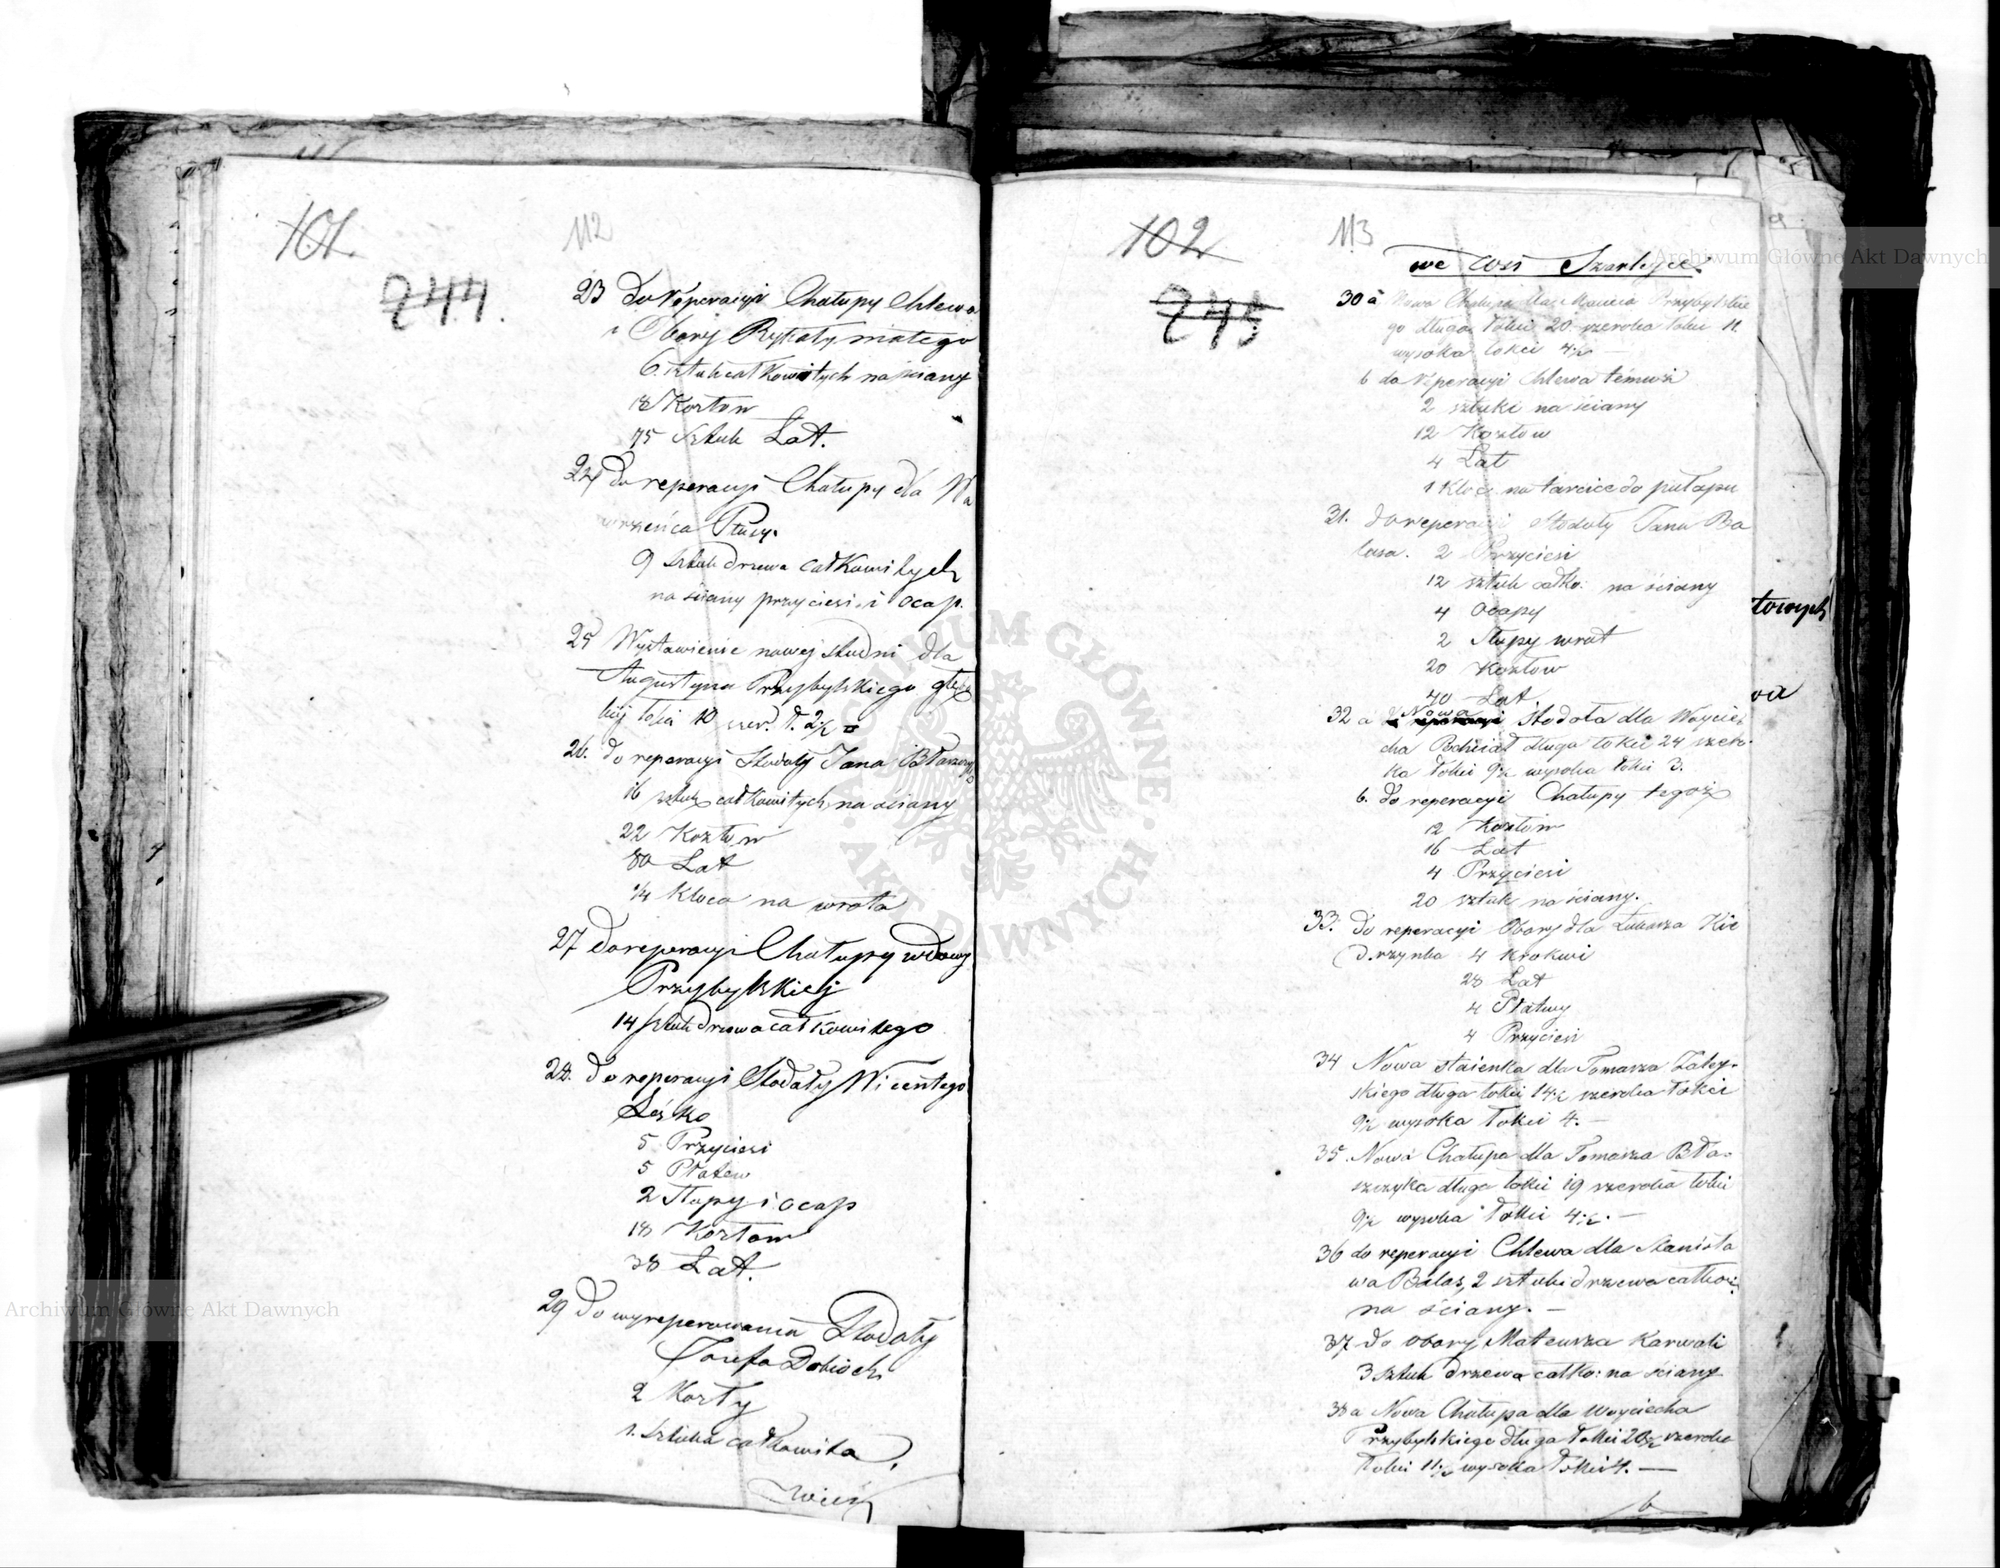 101.
112
244.
23 do reperacyi Chałupy Chlewa
i Obory Rykały małego
6. sztuk całkowitych na sciany
18 Kozłow
75 Sztuk Łat.
24 do reperacyi Chałupy dla Wa
wrzeńca Ptusy.
9 Sztuk drzewa całkowitych
na sciany przyciesi, i ocap.
25 Wystawienie nowej studni dla
Augustyna Przybylskiego głębo
kiej łokci 10 szer. ł. 2½
26. do reperacyi Stodoły Jana Błaszczy
16 sztuk całkowitych na ściany
22 Kozłow
80 Łat
¼ Kloca na wrota
27 do reperacyi Chałupy wdowy
Przybylskiej
14 Sztuk drzewa całkowitego
28. do reperacyi Stodoły Wicentego
Leśko
5 Przyciesi
5 Płatew
2 Słupy i ocap
18 Kozłow
38 Łat.
29 do wyreperowania Stodoły
Jozefa Dobioch
2 Kozły
1. Sztuka całkowita.
we wsi
102
113
245
we Wsi Szarlejce.
30 a Nowa Chałupa dla Macieia Przybylskie
go długa łokci 20 szeroka łokci 11
wysoka łokci 4½ —
b do reperacyi Chlewa temuż
2 sztuki na ściany
12 Kozłow
4 Łat
1 Kloc na tarcice do pułapu
31. do reperacyi Stodoły Jana Ba
lasa. 2 Przyciesi
12 sztuk całko: na ściany
4 Ocapy
2 Słupy wrot
20 Kozłow
40 Łat
32 a Nowa Stodoła dla Woycie
cha długa łokci 24 szero-
ka łokci 9½ wysoka łokci 3.
b. do reperacyi Chałupy tegoż
12 Kozłow
16 Łat
4 Przyciesi
20 sztuk na ściany.
33. do reperacyi Obory dla Łukasza Kie
drzynka 4 Krokwi
28 Łat
4 Płatwy
4 Przyciesi
34 Nowa staienka dla Tomasza Zaley-
skiego długa łokci 14½ szeroka łokci
9½ wysoka łokci 4. —
35. Nowa Chałupa dla Tomasza Bła-
szczyka długa łokci 19 szeroka łokci
9½ wysoka łokci 4½. —
36 do reperacyi Chlewa dla Stanisła
wa Balas, 2 sztuki drzewa całkow:
na ściany. —
37 do obory Mateusza Karwali
3 sztuk drzewa całko: na sciany
38 a Nowa Chałupa dla Woyciecha
Przybylskiego długa łokci 20½ szeroka
łokci 11½ wysoka łokci 4. —
b
towych
wa
Archiwum Główne Akt Dawnych
ARCHIWUM GŁÓWNE AKT DAWNYCH
Archiwum Główne Akt Dawnych